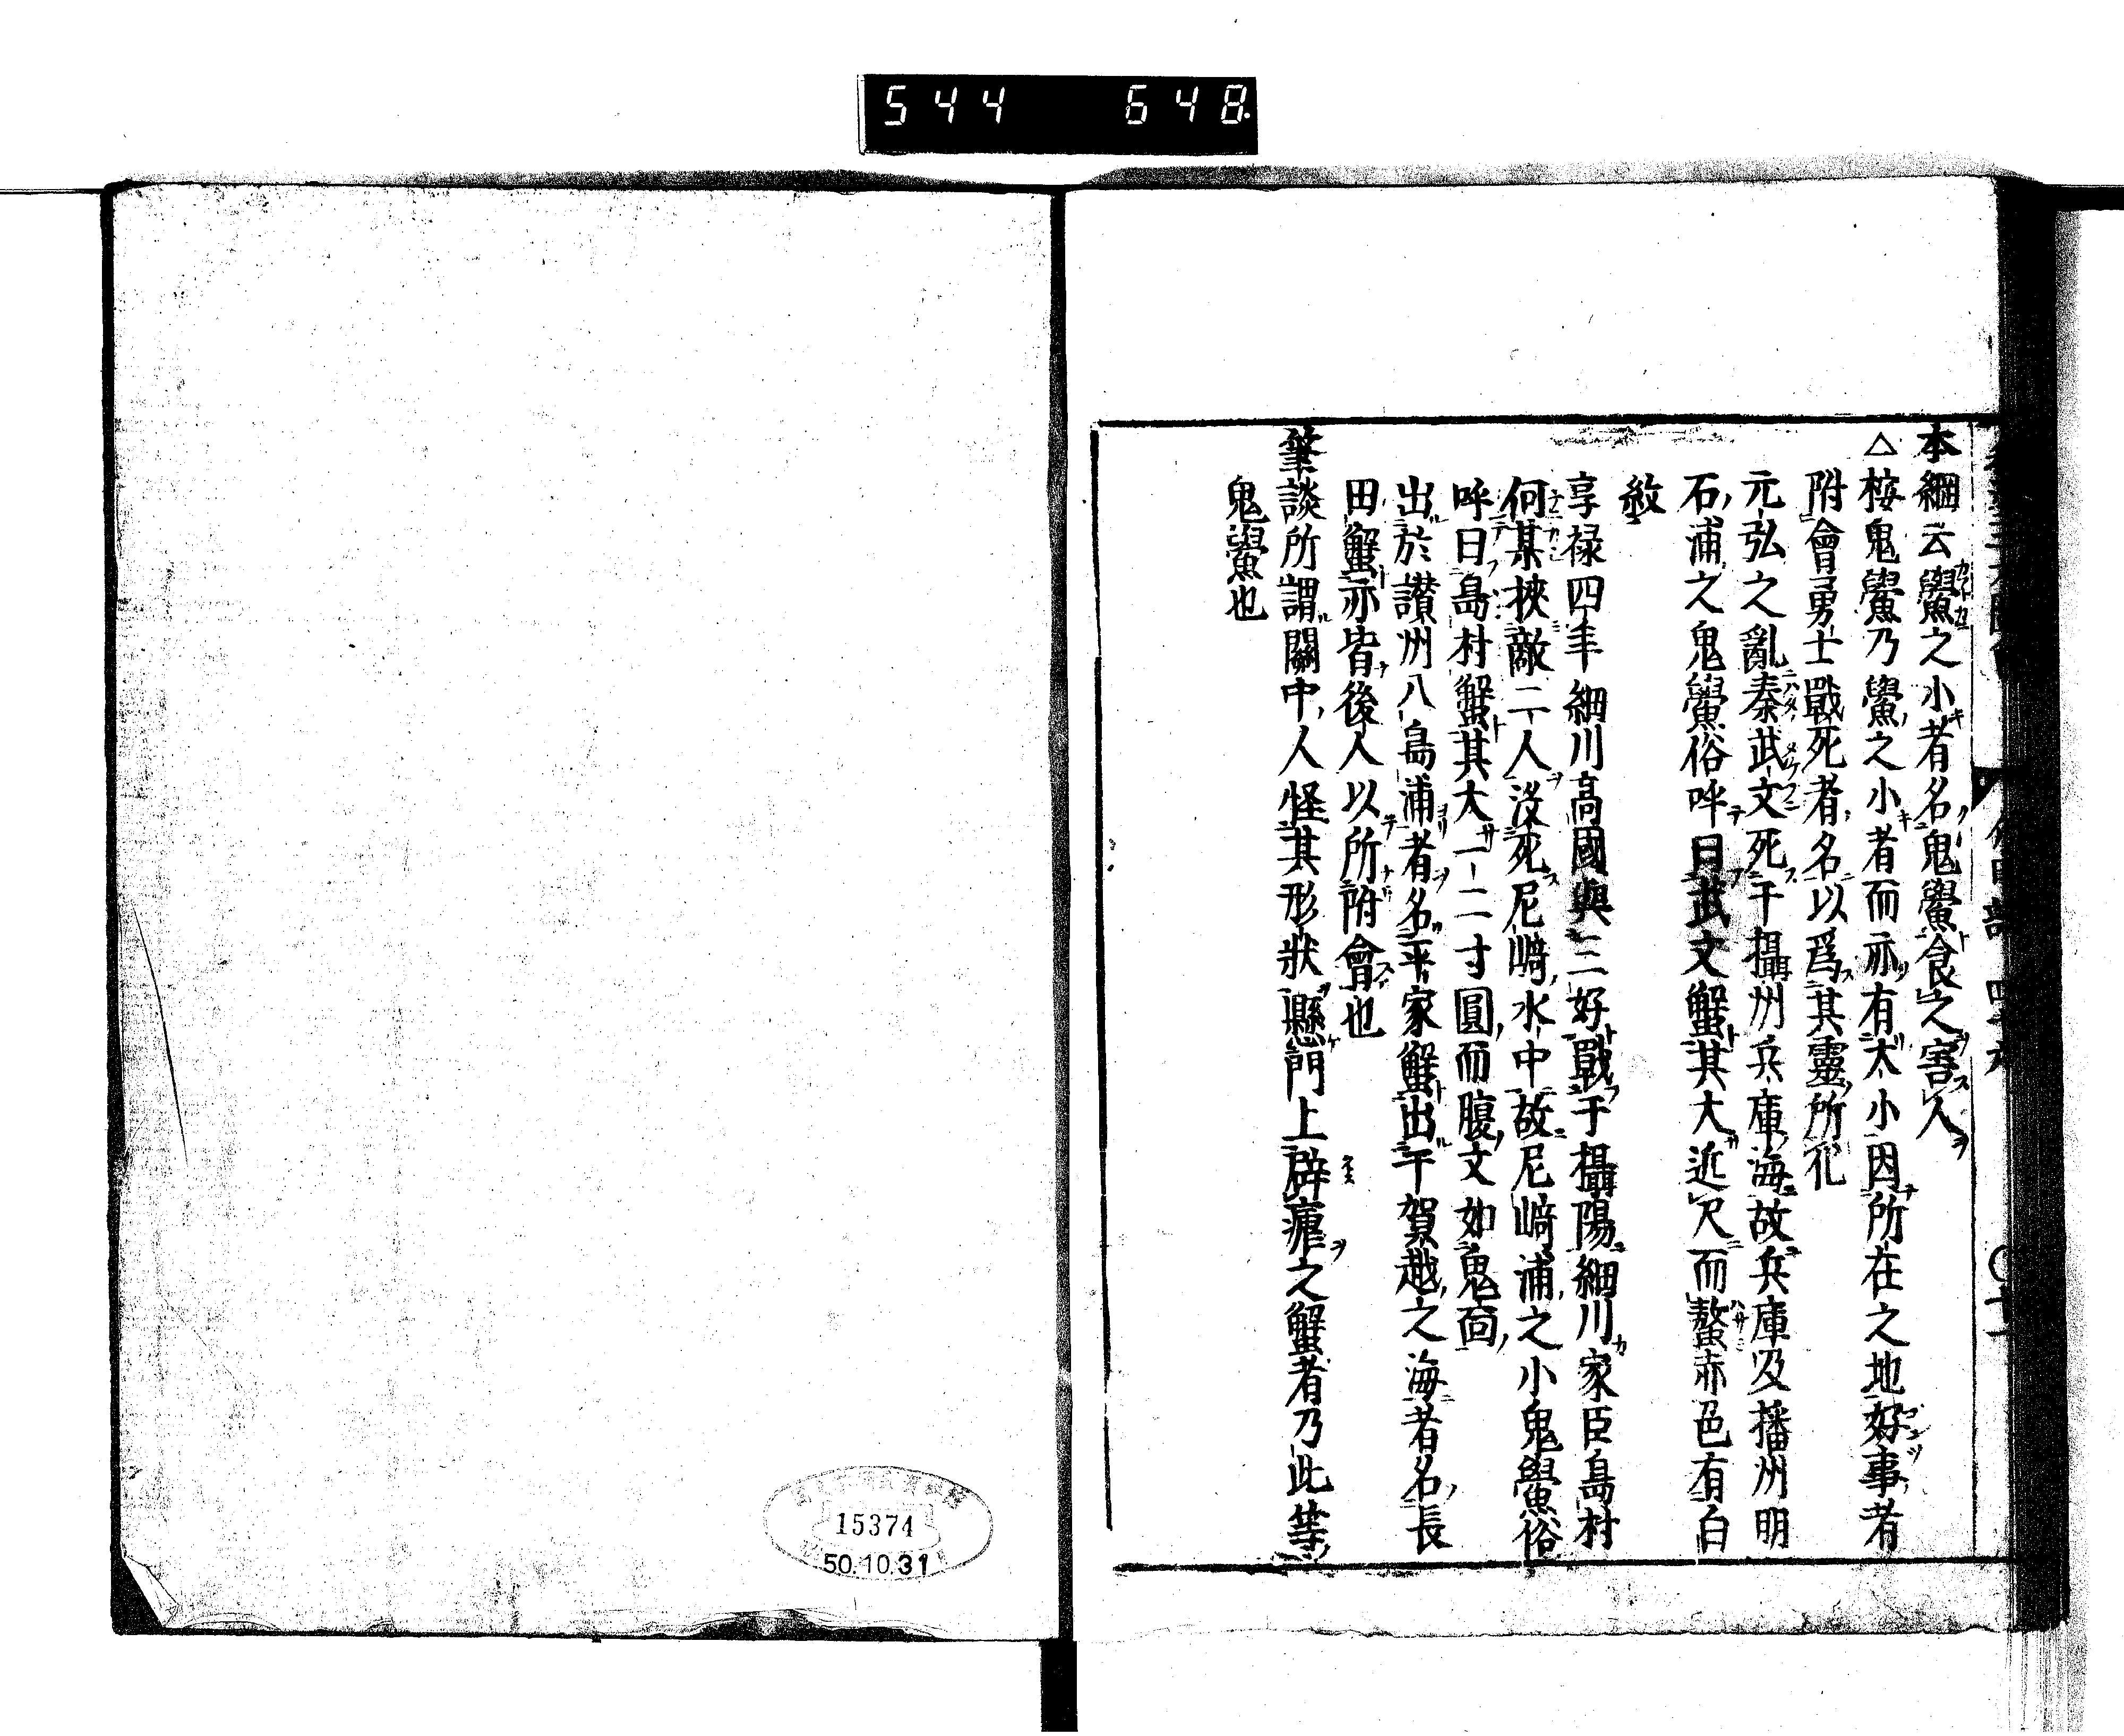 544 648
本綱云鱟之小者名鬼鱟食之害人
△桉鬼鱟乃鱟之小者而亦有大小因所在之地好事者
附會勇士戰死者名以爲其靈所化
元弘之亂秦武文死于攝州兵庫海故兵庫及播州明
石浦之鬼鱟俗呼曰武文蟹其大近尺而螯赤色有白
紋
享禄四年細川高國與三好戰于攝陽細川家臣島村
何某挾敵二人沒死尼﨑水中故尼﨑浦之小鬼鱟俗
呼曰島村蟹其大一二寸圓而腹文如鬼面
出於讃州八島浦者名平家蟹出于賀越之海者名長
田蟹亦皆後人以所附會也
筆談所謂關中人怪其形狀懸門上辟瘧之蟹者乃此等
鬼鱟也
15374
50.10.31